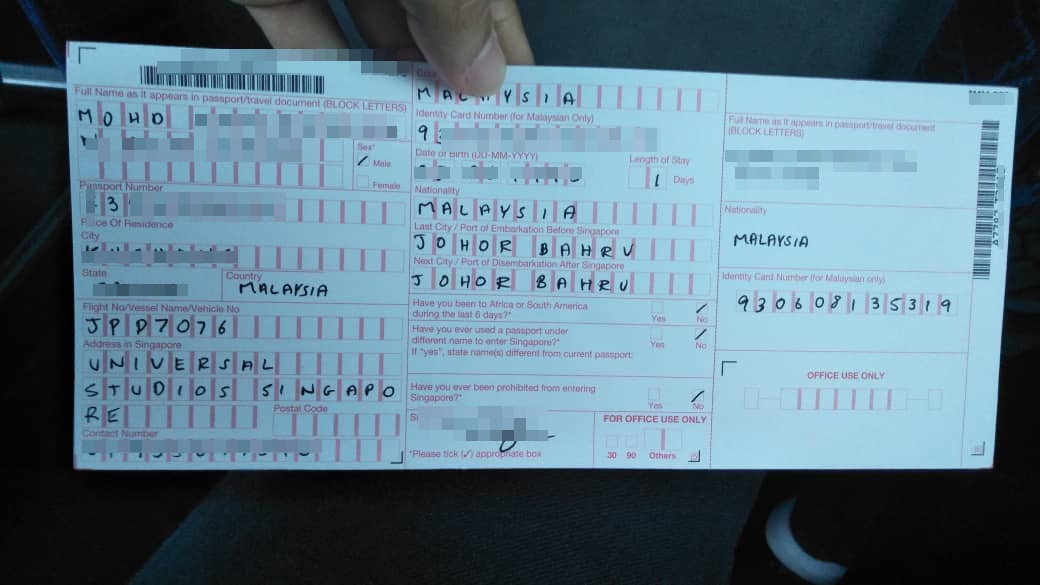 Full Name as it appears in passport/travel document (BLOCK LETTERS)
MOHD
Sex*
Male
Female
Passport Number
Place Of Residence
City
State
Country
MALAYSIA
Flight No/Vessel Name/Vehicle No
JPD7076
Address in Singapore
UNIVERSAL
STUDIOS SINGAPO
RE
Postal Code
Contact Number
MALAYSIA
Identity Card Number (for Malaysian Only)
Date of Birth (DD-MM-YYYY)
Length of Stay
1 Days
Nationality
MALAYSIA
Last City / Port of Embarkation Before Singapore
JOHOR BAHRU
Next City / Port of Disembarkation After Singapore
JOHOR BAHRU
Have you been to Africa or South America
during the last 6 days?*
Yes No
Have you ever used a passport under
different name to enter Singapore?*
If "yes", state name(s) different from current passport:
Yes No
Have you ever been prohibited from entering
Singapore?*
Yes No
FOR OFFICE USE ONLY
30 90 Others
*Please tick (✓) appropriate box
Full Name as it appears in passport/travel document
(BLOCK LETTERS)
Nationality
MALAYSIA
Identity Card Number (for Malaysian only)
930608135319
OFFICE USE ONLY